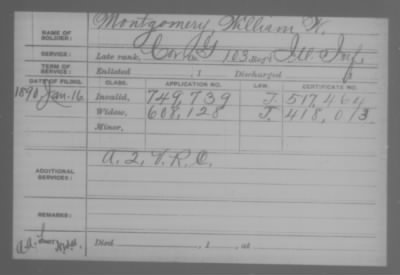 NAME OF SOLDIER: Montgomery, William W.
SERVICE: Late rank, G 103 Ill. Inf.
TERM OF SERVICE: Enlisted , 1 Discharged
DATE OF FILING. CLASS. APPLICATION NO. LAW. CERTIFICATE NO.
1890, Jan. 16. Invalid, 749,739 J. 517,464
Widow, 608,128 J. 418,013
Minor,
ADDITIONAL SERVICES: A. 2, V. R. C.
REMARKS:
Died , 1 , at